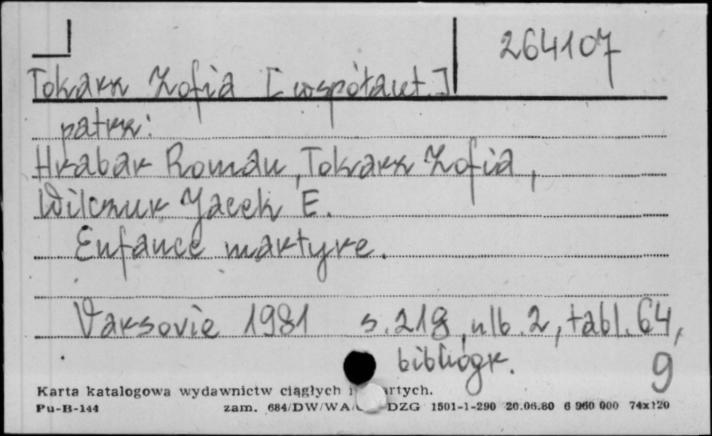 264107
Tokarz Zofia [współaut.]
patrz:
Hrabar Roman, Tokarz Zofia,
Wilczur Jacek E.
Enfance martyre.
Varsovie 1981 s. 218, nlb. 2, tabl. 64,
bibliogr. 9
Karta katalogowa wydawnictw ciągłych
Pu-B-144 zam. 684/DW/WA/ DZG 1501-1-290 20.06.80 6 960 000 74x120